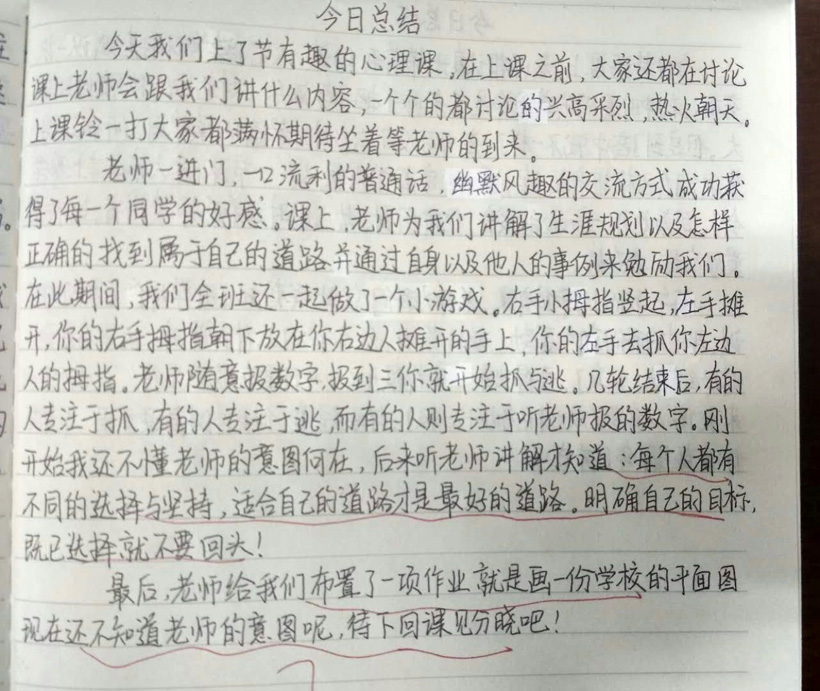 今日总结
今天我们上了节有趣的心理课,在上课之前,大家还都在讨论
课上老师会跟我们讲什么内容,一个个的都讨论的兴高采烈,热火朝天。
上课铃一打大家都满怀期待坐着等老师的到来。
老师一进门,一口流利的普通话,幽默风趣的交流方式成功获
得了每一个同学的好感。课上,老师为我们讲解了生涯规划以及怎样
正确的找到属于自己的道路并通过自身以及他人的事例来勉励我们。
在此期间,我们全班还一起做了一个小游戏。右手小拇指竖起,左手摊
开,你的右手拇指朝下放在你右边人摊开的手上,你的左手去抓你左边
人的拇指。老师随意报数字,报到三你就开始抓与逃。几轮结束后,有的
人专注于抓,有的人专注于逃,而有的人则专注于听老师报的数字。刚
开始我还不懂老师的意图何在,后来听老师讲解才知道:每个人都有
不同的选择与坚持,适合自己的道路才是最好的道路。明确自己的目标,
既已选择就不要回头!
最后,老师给我们布置了一项作业就是画一份学校的平面图
现在还不知道老师的意图呢,待下回课见分晓吧!